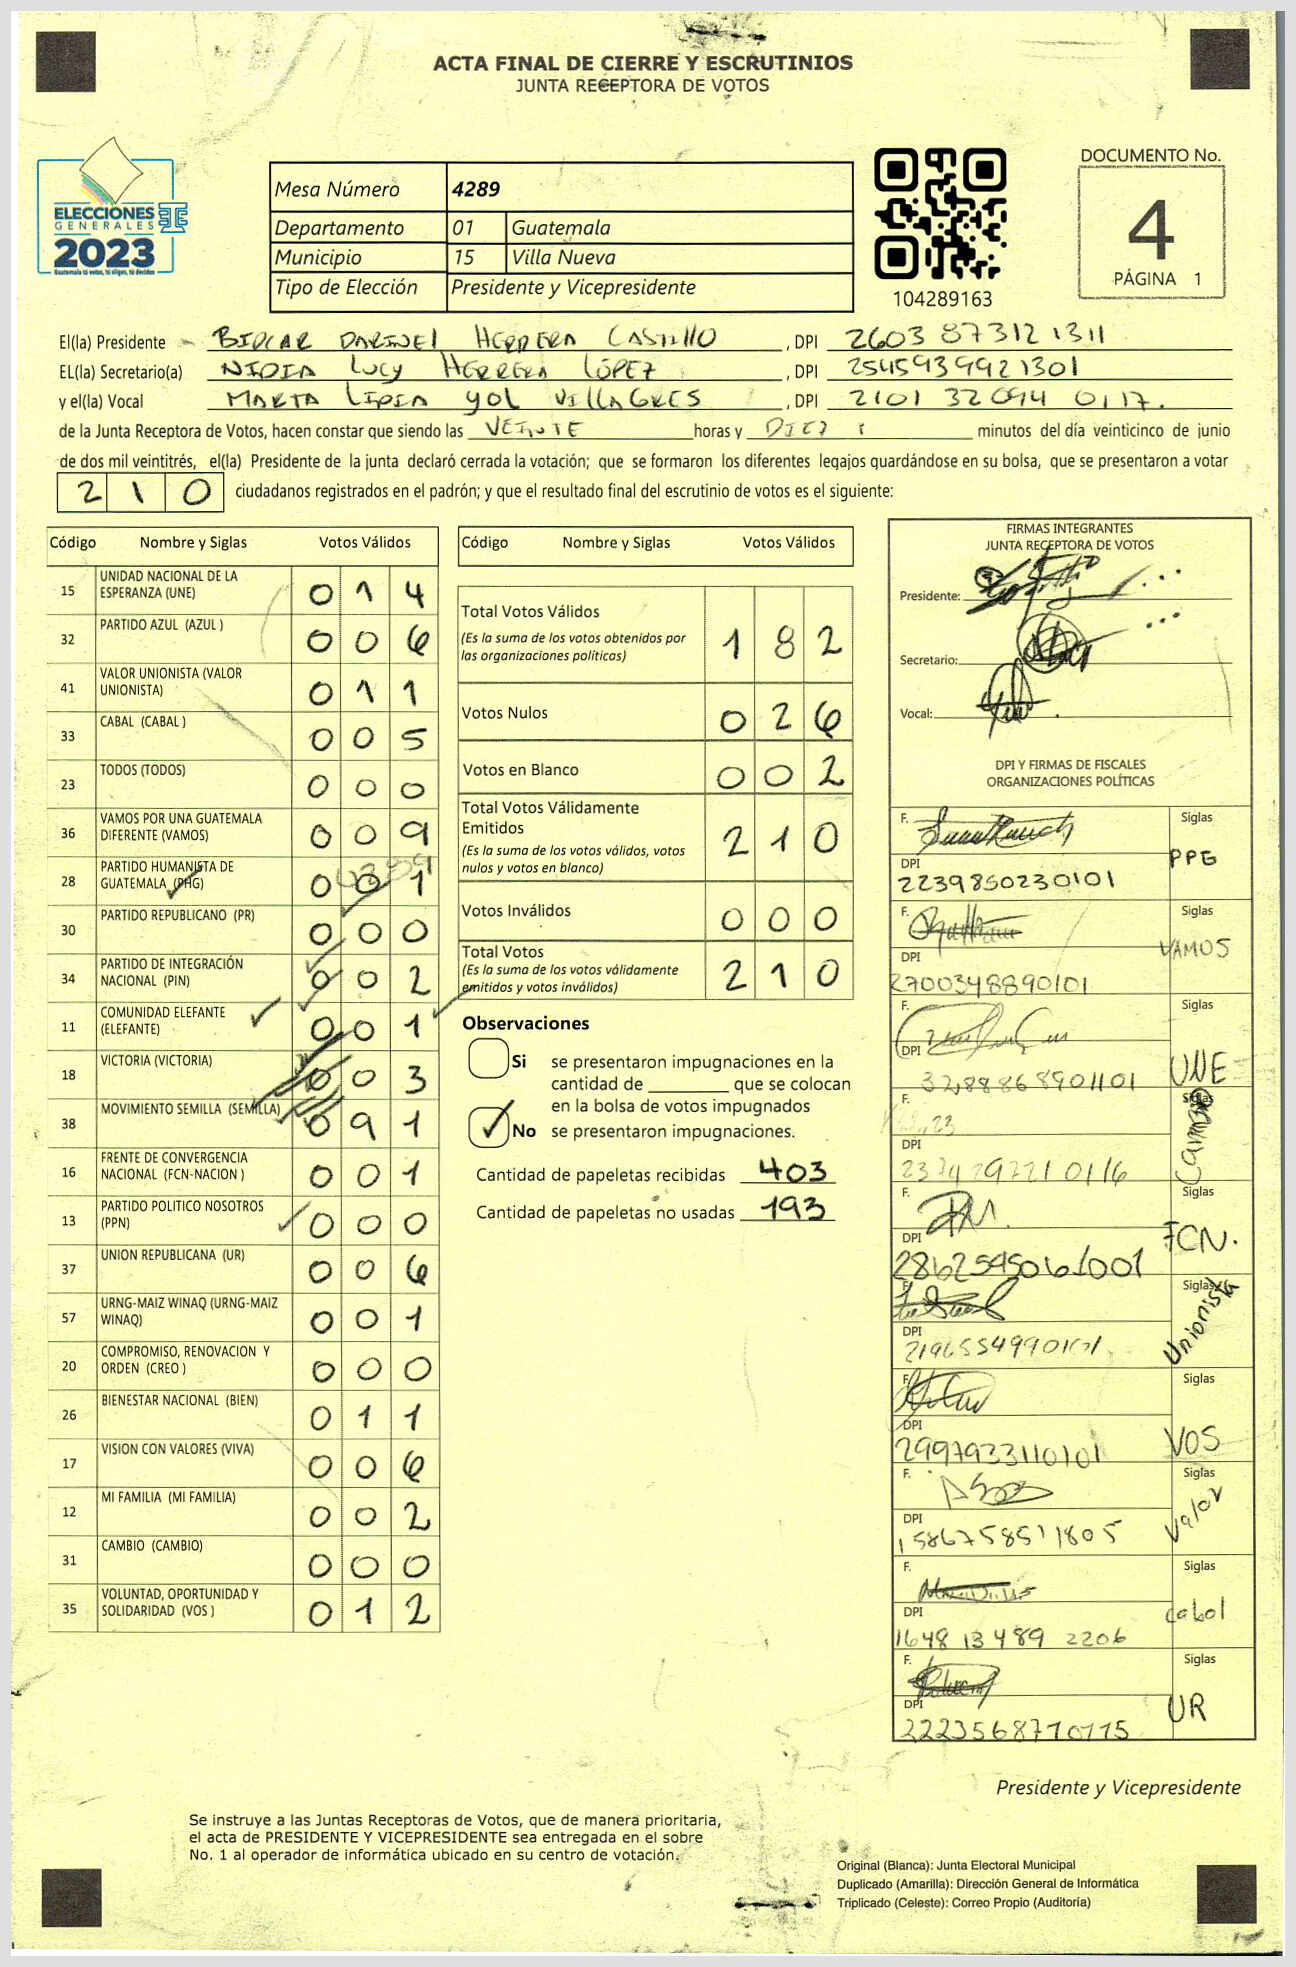 ACTA FINAL DE CIERRE Y ESCRUTINIOS
JUNTA RECEPTORA DE VOTOS
ELECCIONES
GENERALES
2023
Guatemala tú votas, tú eliges, tú decides
Mesa Número 4289
Departamento 01 Guatemala
Municipio 15 Villa Nueva
Tipo de Elección Presidente y Vicepresidente
104289163
DOCUMENTO No.
4
PÁGINA 1
El(la) Presidente DARINEL HERRERA CASTILLO , DPI 2603 87312 1311
EL(la) Secretario(a) NIDIA LUCY HERRERA LÓPEZ , DPI 2545939921301
y el(la) Vocal MARTA LIDIA YOL VILLAGRES , DPI 2101 32094 0117.
de la Junta Receptora de Votos, hacen constar que siendo las VEINTE horas y DIEZ minutos del día veinticinco de junio
de dos mil veintitrés, el(la) Presidente de la junta declaró cerrada la votación; que se formaron los diferentes legajos guardándose en su bolsa, que se presentaron a votar
210 ciudadanos registrados en el padrón; y que el resultado final del escrutinio de votos es el siguiente:
Código Nombre y Siglas Votos Válidos
15 UNIDAD NACIONAL DE LA ESPERANZA (UNE) 014
32 PARTIDO AZUL (AZUL ) 006
41 VALOR UNIONISTA (VALOR UNIONISTA) 011
33 CABAL (CABAL ) 005
23 TODOS (TODOS) 000
36 VAMOS POR UNA GUATEMALA DIFERENTE (VAMOS) 009
28 PARTIDO HUMANISTA DE GUATEMALA (PHG) 001
30 PARTIDO REPUBLICANO (PR) 000
34 PARTIDO DE INTEGRACIÓN NACIONAL (PIN) 002
11 COMUNIDAD ELEFANTE (ELEFANTE) 001
18 VICTORIA (VICTORIA) 003
38 MOVIMIENTO SEMILLA (SEMILLA) 091
16 FRENTE DE CONVERGENCIA NACIONAL (FCN-NACION ) 001
13 PARTIDO POLITICO NOSOTROS (PPN) 000
37 UNION REPUBLICANA (UR) 006
57 URNG-MAIZ WINAQ (URNG-MAIZ WINAQ) 001
20 COMPROMISO, RENOVACION Y ORDEN (CREO ) 000
26 BIENESTAR NACIONAL (BIEN) 011
17 VISION CON VALORES (VIVA) 006
12 MI FAMILIA (MI FAMILIA) 002
31 CAMBIO (CAMBIO) 000
35 VOLUNTAD, OPORTUNIDAD Y SOLIDARIDAD (VOS ) 012
Código Nombre y Siglas Votos Válidos
Total Votos Válidos 182
(Es la suma de los votos obtenidos por
las organizaciones políticas)
Votos Nulos 026
Votos en Blanco 002
Total Votos Válidamente
Emitidos 210
(Es la suma de los votos válidos, votos
nulos y votos en blanco)
Votos Inválidos 000
Total Votos 210
(Es la suma de los votos válidamente
emitidos y votos inválidos)
Observaciones
Si se presentaron impugnaciones en la
cantidad de ________ que se colocan
en la bolsa de votos impugnados
No se presentaron impugnaciones.
Cantidad de papeletas recibidas 403
Cantidad de papeletas no usadas 193
FIRMAS INTEGRANTES
JUNTA RECEPTORA DE VOTOS
Presidente:
Secretario:
Vocal:
DPI Y FIRMAS DE FISCALES
ORGANIZACIONES POLÍTICAS
F. Siglas
DPI 2239850230101
F. Siglas VAMOS
DPI 2700348890101
F. Siglas UNE
DPI 3288868901101
F. Siglas
DPI
F. Siglas FCN.
DPI 2862595061001
F. Siglas Unionista
DPI
F. Siglas VOS
DPI 2997933110101
F. Siglas Valor
DPI 1586758511805
F. Siglas cabal
DPI 1648 13489 2206
F. Siglas UR
DPI 2223568710115
Presidente y Vicepresidente
Se instruye a las Juntas Receptoras de Votos, que de manera prioritaria,
el acta de PRESIDENTE Y VICEPRESIDENTE sea entregada en el sobre
No. 1 al operador de informática ubicado en su centro de votación.
Original (Blanca): Junta Electoral Municipal
Duplicado (Amarilla): Dirección General de Informática
Triplicado (Celeste): Correo Propio (Auditoría)